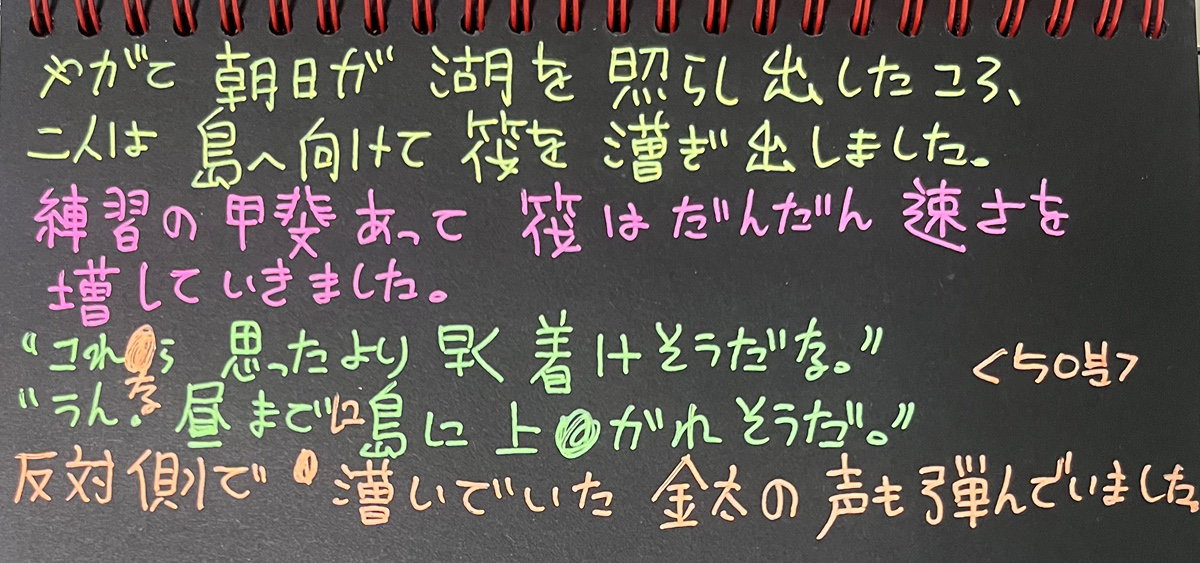 やがて 朝日が 湖を 照らし 出したころ、
二人は 島へ 向けて 筏を 漕ぎ 出しました。
練習の 甲斐 あって 筏は だんだん 速さを
増して いきました。
“これなら 思ったより 早く 着けそうだな。”
<50분>
“うん。昼までに島に 上がれそうだ。”
反対側で 漕いでいた 金太の 声も 弾んでいました